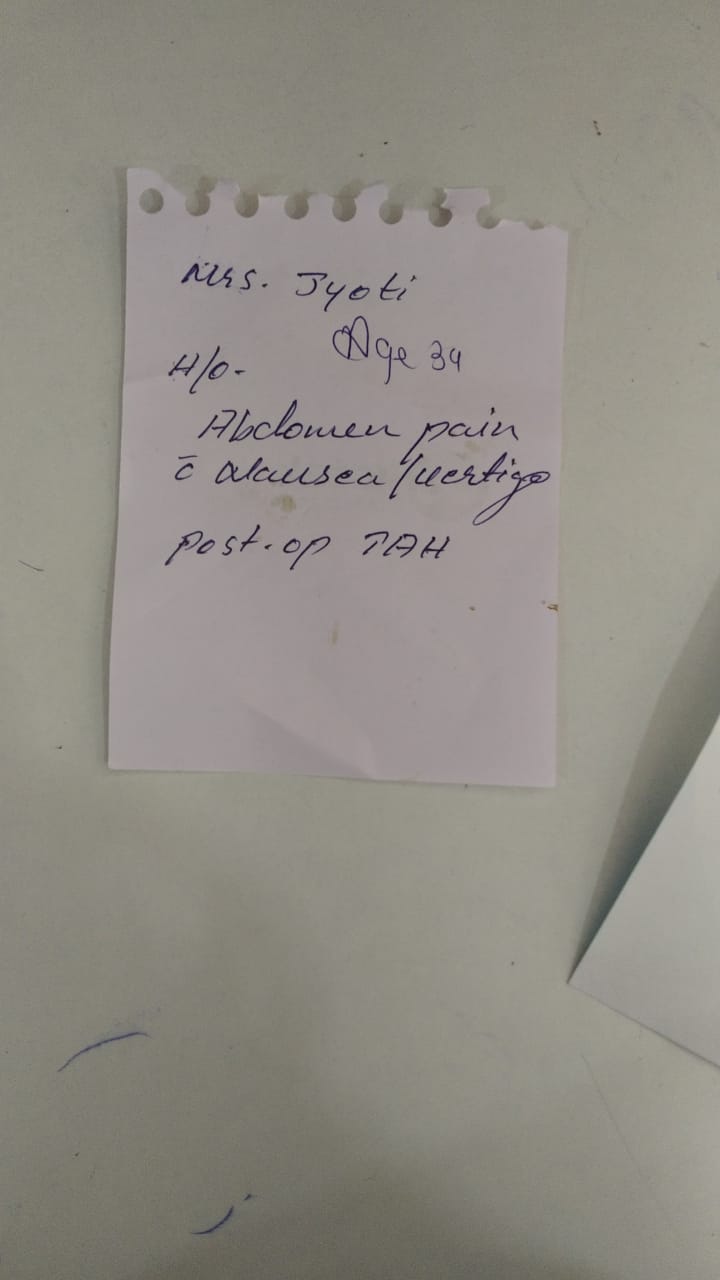 Mrs. Jyoti
Age 34
H/o-
Abdomen pain
c̄ Nausea/vertigo
post-op TAH